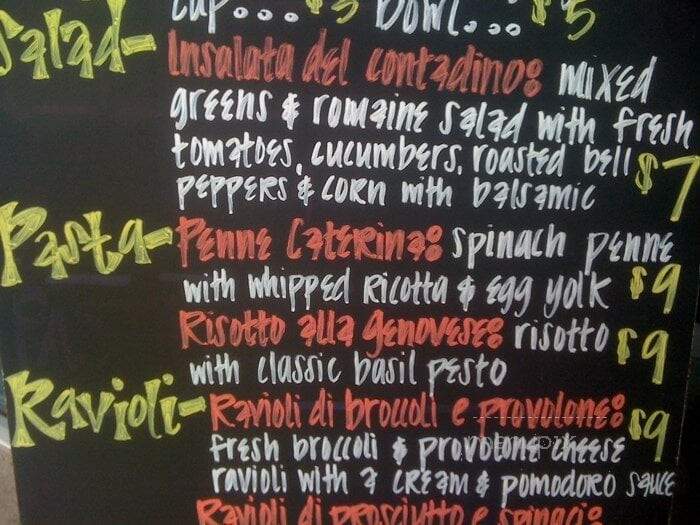 cup... $3 Bowl... $5
Salad- Insalata del contadino: mixed
greens & romaine salad with fresh
tomatoes, cucumbers, roasted bell
peppers & corn with balsamic $7
Pasta- Penne Caterina: spinach penne
with whipped ricotta & egg yolk $9
Risotto alla genovese: risotto $9
with classic basil pesto
Ravioli- Ravioli di broccoli e provolone: $9
fresh broccoli & provolone cheese
ravioli with a cream & pomodoro sauce
Ravioli di prosciutto e spinaci: